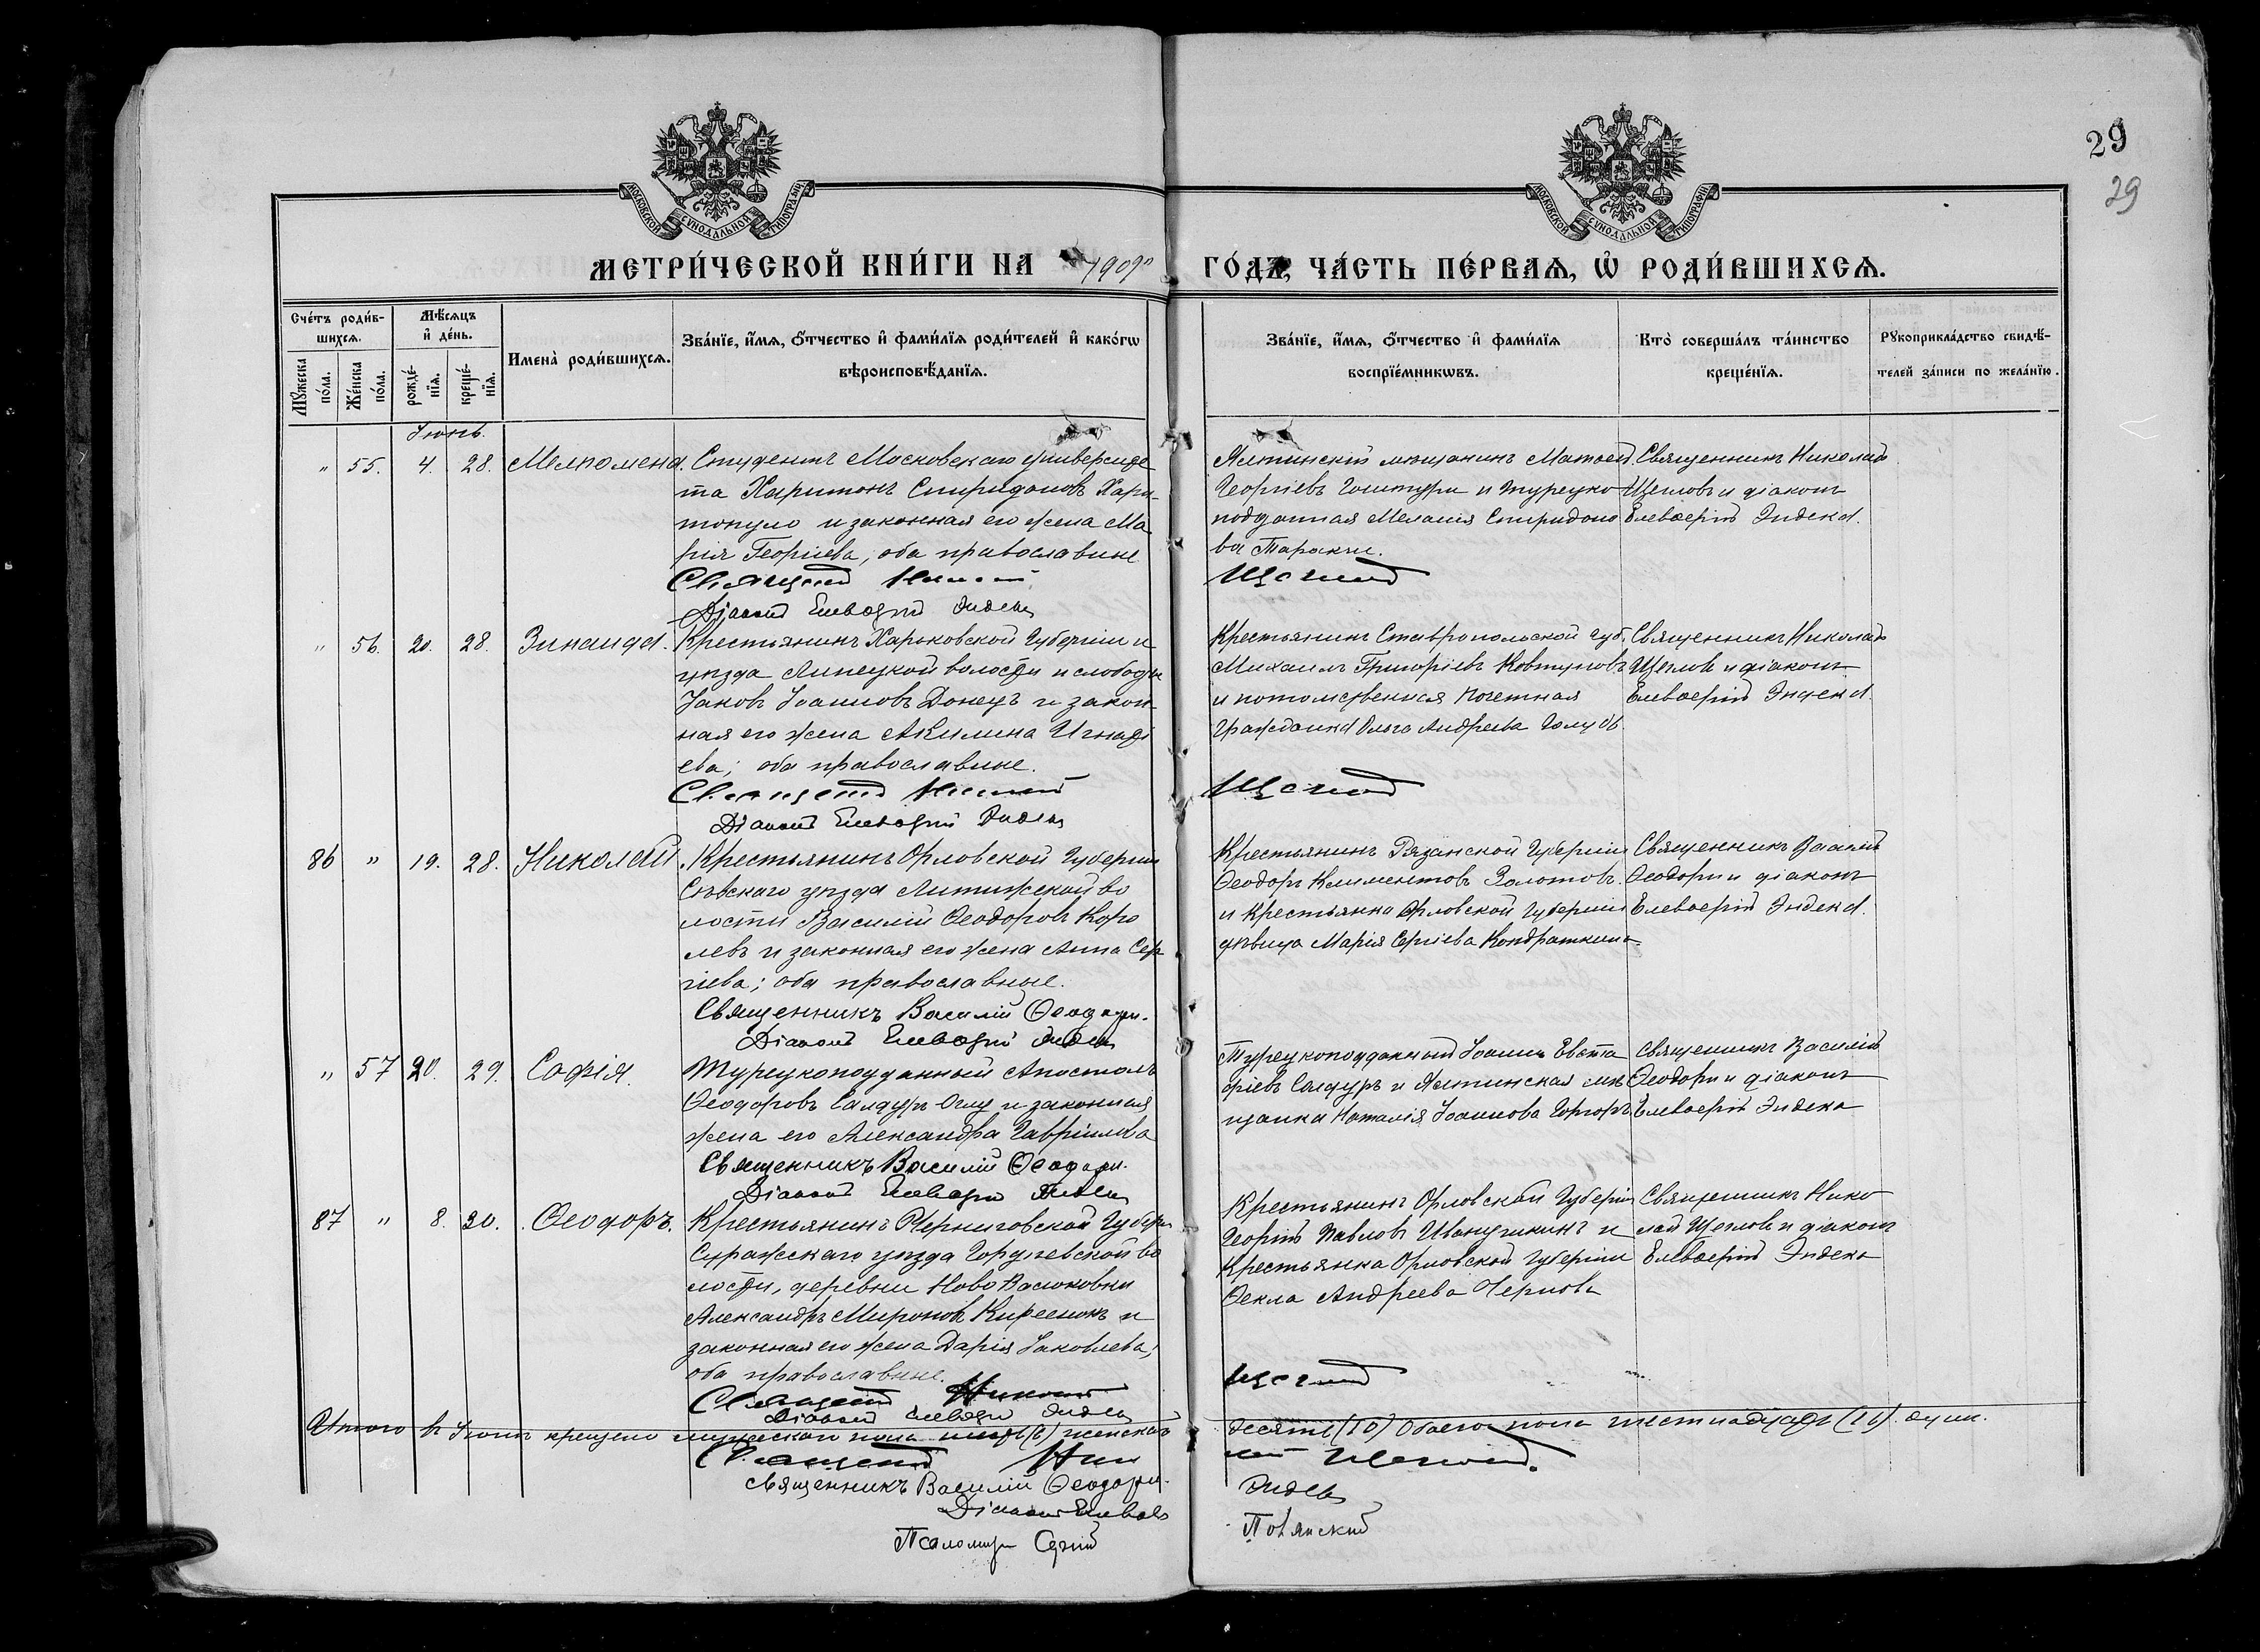 29
29
МОСКОВСКОЙ СУНОДАЛЬНОЙ ТИПОГРАФІИ
МОСКОВСКОЙ СУНОДАЛЬНОЙ ТИПОГРАФІИ
МЕТРИ́ЧЕСКОЙ КНИ́ГИ НА 1909 ГО́ДЪ, ЧА́СТЬ ПЕ́РВАѦ, Ѽ РОДИ́ВШИХСѦ.
Сче́тъ роди́в-
шихсѧ.
Мѣ́сѧцъ
и҆ де́нь.
Мꙋ́жеска
по́ла.
Же́нска
по́ла.
рожде́-
нїѧ.
креще́-
нїѧ.
Имена̀ роди́вшихсѧ.
Зва́нїе, и҆́мѧ, ѻ҆́тчество и҆ фами́лїѧ роди́телей и҆ како́гѡ
вѣроисповѣ́данїѧ.
Зва́нїе, и҆́мѧ, ѻ҆́тчество и҆ фами́лїѧ
воспрїе́мникѡвъ.
Кто̀ соверша́лъ та́инство
креще́нїѧ.
Рꙋкоприкла́дство свидѣ́-
телей за́писи по жела́нїю.
Іюнь.
" 55. 4. 28. Мелпомена.
Студентъ Московскаго Университе
та Харитонъ Спиридоновъ Хари-
топуло и законная его жена Ма
рія Георгіева, оба православные
Священникъ Николай Щегловъ
Діаконъ Елевѳерій Эндека
Ялтинскій мѣщанинъ Матѳей
Георгіевъ и турецко
подданная Меланія Спиридоно
ва
Священникъ Николай
Щегловъ и діаконъ
Елевѳерій Эндека.
" 56. 20. 28. Зинаида.
Крестьянинъ Харьковской Губерніи и
уѣзда Липецкой волости и слободы
Іаковъ Іоанновъ Донецъ и закон
ная его жена Акилина Игнаті
ева; оба православные.
Священникъ Николай Щегловъ
Діаконъ Елевѳерій Эндека
Крестьянинъ Ставропольской губ.
Михаилъ Григоріевъ Ковтуновъ
и потомственная почетная
Гражданка Ольга Андреева Голубъ
Священникъ Николай
Щегловъ и діаконъ
Елевѳерій Эндека.
86 " 19. 28. Николай.
Крестьянинъ Орловской Губерніи
Сѣвскаго уѣзда Литижской во
лости Василій Ѳеодоровъ Коро
левъ и законная его жена Анна Сер
гіева; оба православные.
Священникъ Василій Ѳеодори.
Діаконъ Елевѳерій Эндека
Крестьянинъ Рязанской Губерніи
Ѳеодоръ Климентовъ Золотовъ.
и крестьянка Орловской Губерніи
дѣвица Марія Сергіева Кондраткина
Священникъ Василій
Ѳеодори и діаконъ
Елевѳерій Эндека.
" 57 20. 29. Софія.
Турецкоподданный Апостолъ
Ѳеодоровъ Салдуръ Оглу и законная
жена его Александра Гавріилова
Священникъ Василій Ѳеодори.
Діаконъ Елевѳерій Эндека
Турецкоподданный Іоаннъ Евста
фіевъ Салдуръ и Ялтинская мѣ
щанка Наталія Іоаннова
Священникъ Василій
Ѳеодори и діаконъ
Елевѳерій Эндека
87 " 8. 30. Ѳеодоръ.
Крестьянинъ Черниговской Губерн
Суражскаго уѣзда волости, деревни Ново Васюковки
Александръ Мироновъ и
законная его жена Дарія Іаковлева;
оба православные.
Священникъ Николай Щегловъ
Діаконъ Елевѳерій Эндека
Крестьянинъ Орловской Губерніи
Георгій Павловъ Иванушкинъ и
Крестьянка Орловской Губерніи
Ѳекла Андреева Чернова
Священникъ Нико
лай Щегловъ и діаконъ
Елевѳерій Эндека
Итого въ Іюнѣ крещено мужескаго пола шесть (6) женскаго десять (10) Обоего пола шестнадцать (16) душъ.
Священникъ Николай Щегловъ.
Священникъ Василій Ѳеодори.
Діаконъ Елевѳ Эндека
Псаломщ Сергій